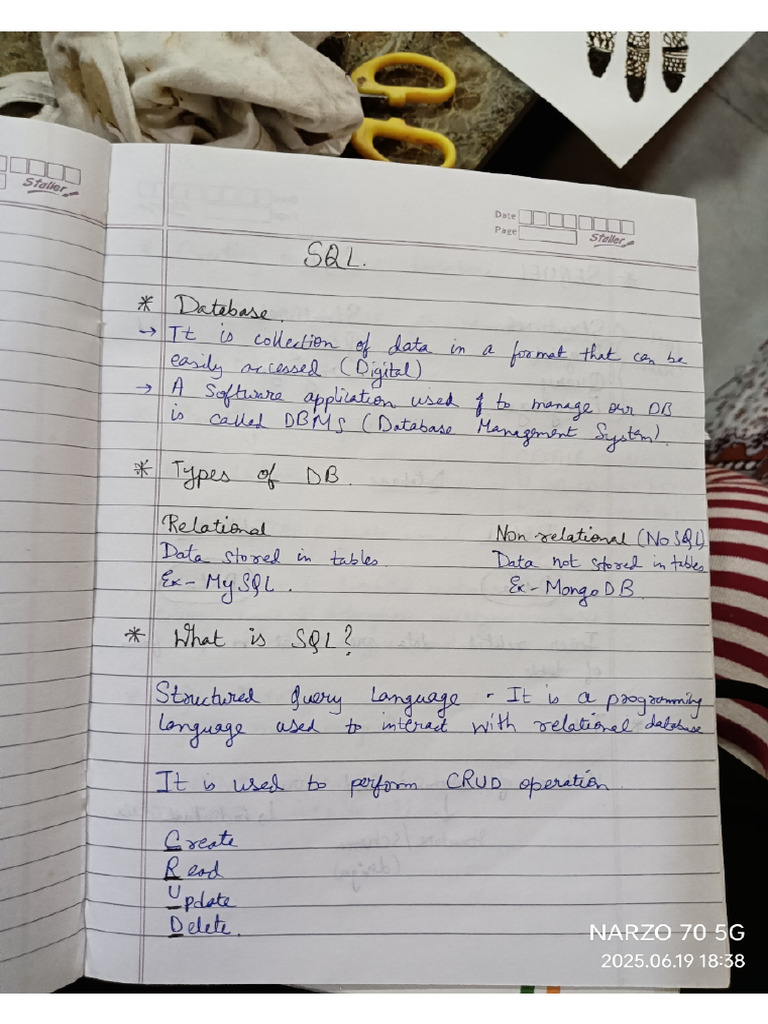 Staller
Date
Page
Staller
SQL.
* Database.
→ It is collection of data in a format that can be
easily accessed (Digital)
→ A Software application used to manage our DB
is called DBMS (Database Management System).
* Types of DB.
Relational
Data stored in tables.
Ex - MySQL.
Non relational (NoSQL)
Data not stored in tables
Ex - MongoDB.
* What is SQL?
Structured Query Language - It is a programming
language used to interact with relational database
It is used to perform CRUD operation.
Create
Read
Update
Delete.
NARZO 70 5G
2025.06.19 18:38